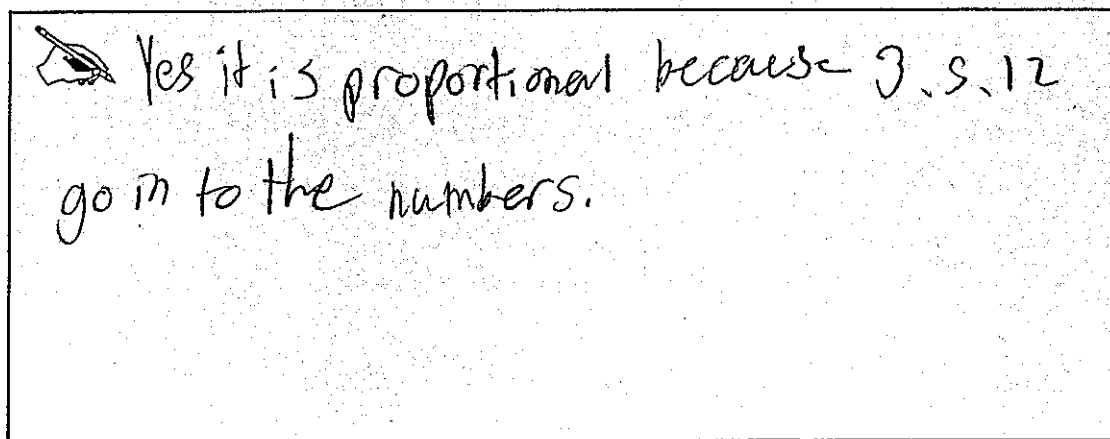 Yes it is proportional because 3, 5, 12
go in to the numbers.